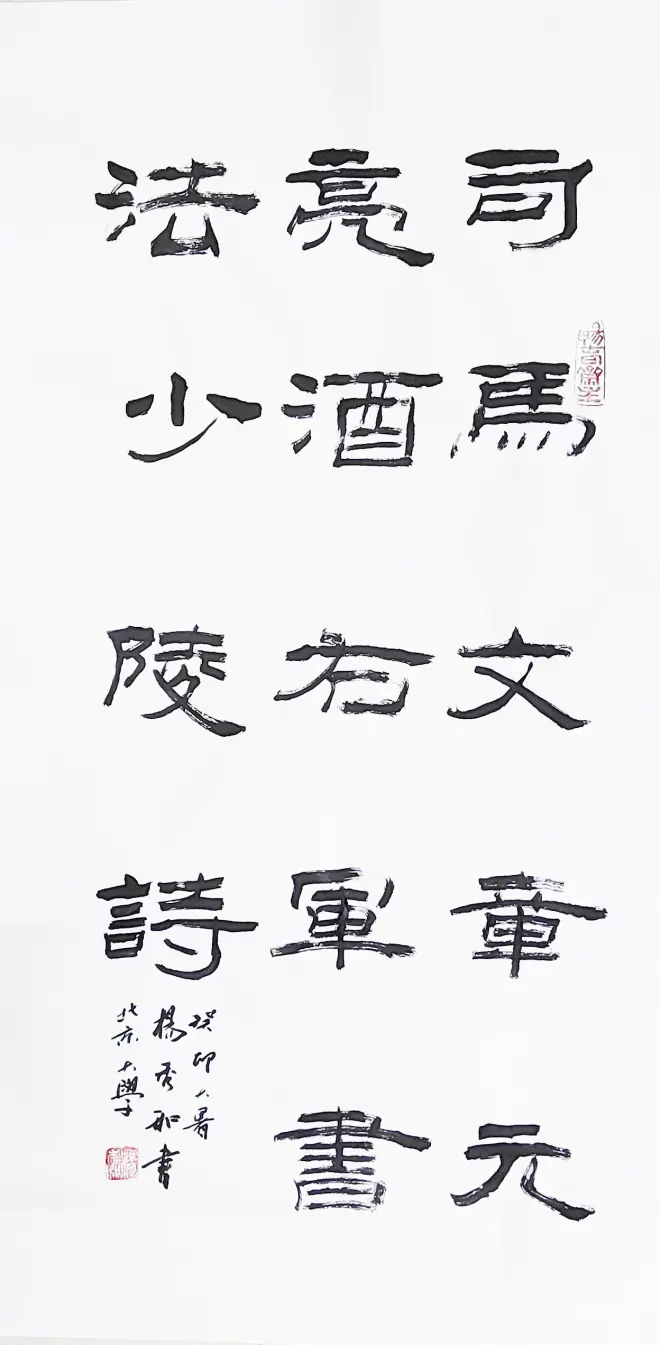 司馬文章元
亮酒右軍書
法少陵詩
癸卯大暑
楊秀和書
北京大學